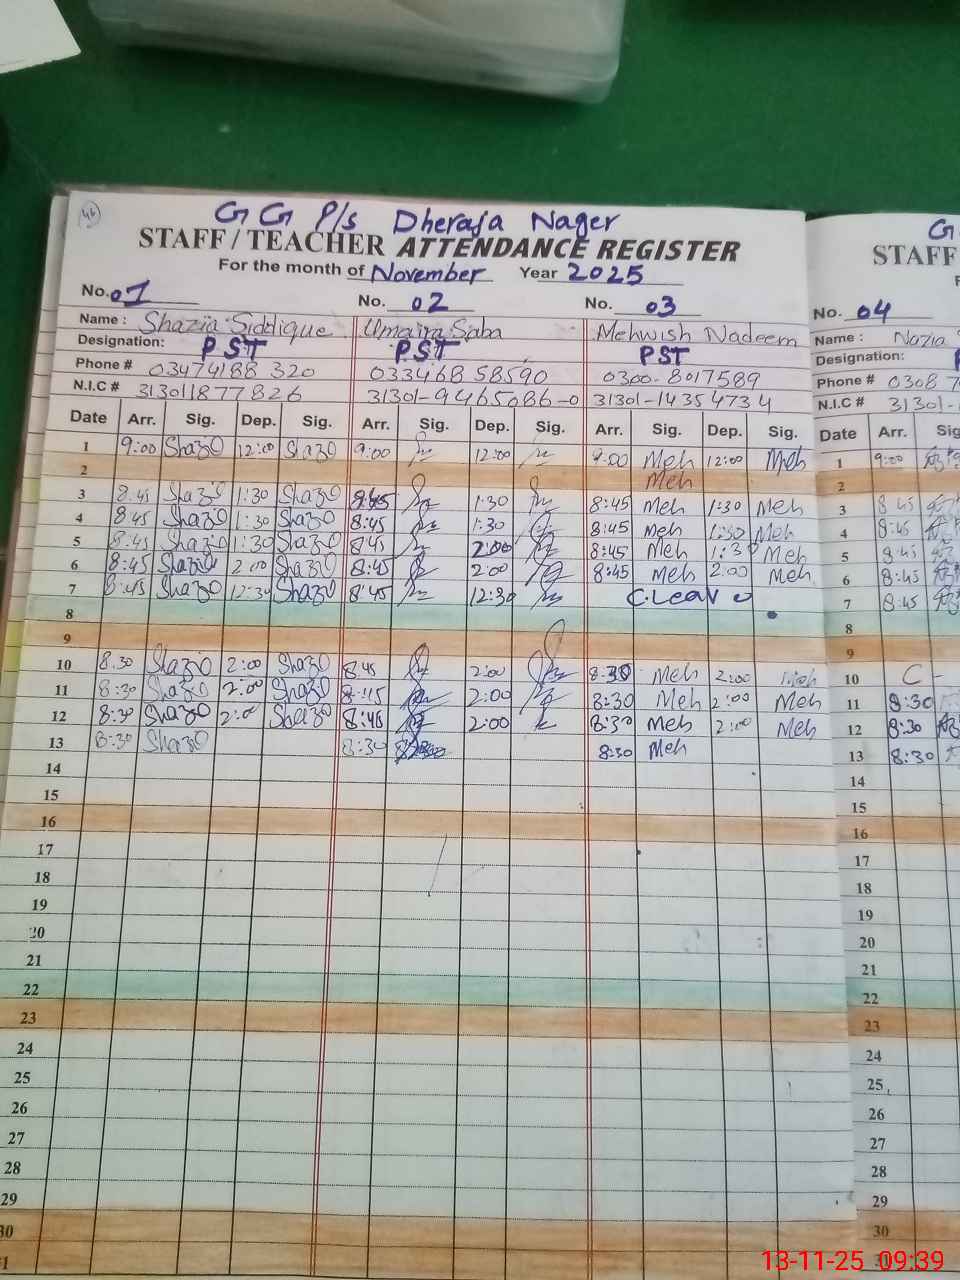 46
G G P/s Dheraja Nager
STAFF / TEACHER ATTENDANCE REGISTER
For the month of November Year 2025
No. 01 No. 02 No. 03
Name : Shazia Siddique Umaira Saba Mehwish Nadeem
Designation: PST PST PST
Phone # 03474188 320 0300-8017589
N.I.C # 313011877826 31301-9465086-0 31301-14354734
Date Arr. Sig. Dep. Sig. Arr. Sig. Dep. Sig. Arr. Sig. Dep. Sig.
1 9:00 Shazo 12:00 Shazo 9:00 12:00 9:00 Meh 12:00 Meh
2 Meh
3 8:45 Shazo 1:30 Shazo 8:45 1:30 8:45 Meh 1:30 Meh
4 8:45 Shazo 1:30 Shazo 8:45 1:30 8:45 Meh 1:30 Meh
5 8:45 Shazo 1:30 Shazo 8:45 2:00 8:45 Meh 1:30 Meh
6 8:45 Shazo 2:00 Shazo 8:45 2:00 8:45 Meh 2:00 Meh
7 8:45 Shazo 12:30 Shazo 8:45 12:30 C.Leave
8
9
10 8:30 Shazo 2:00 Shazo 8:45 2:00 8:30 Meh 2:00 Meh
11 8:30 Shazo 2:00 Shazo 2:00 8:30 Meh 2:00 Meh
12 8:30 Shazo 2:00 Shazo 8:45 2:00 8:30 Meh 2:00 Meh
13 8:30 Shazo 8:30 8:30 Meh
14
15
16
17
18
19
20
21
22
23
24
25
26
27
28
29
30
G
STAFF
No. 04
Name : Nazia
Designation:
Phone # 0308 7
N.I.C # 31301-
Date Arr. Sig
1 9:00
2
3 8:45
4 8:45
5 8:45
6 8:45
7 8:45
8
9
10 C -
11 8:30
12 8:30
13 8:30
14
15
16
17
18
19
20
21
22
23
24
25
26
27
28
29
30
31
13-11-25 09:39